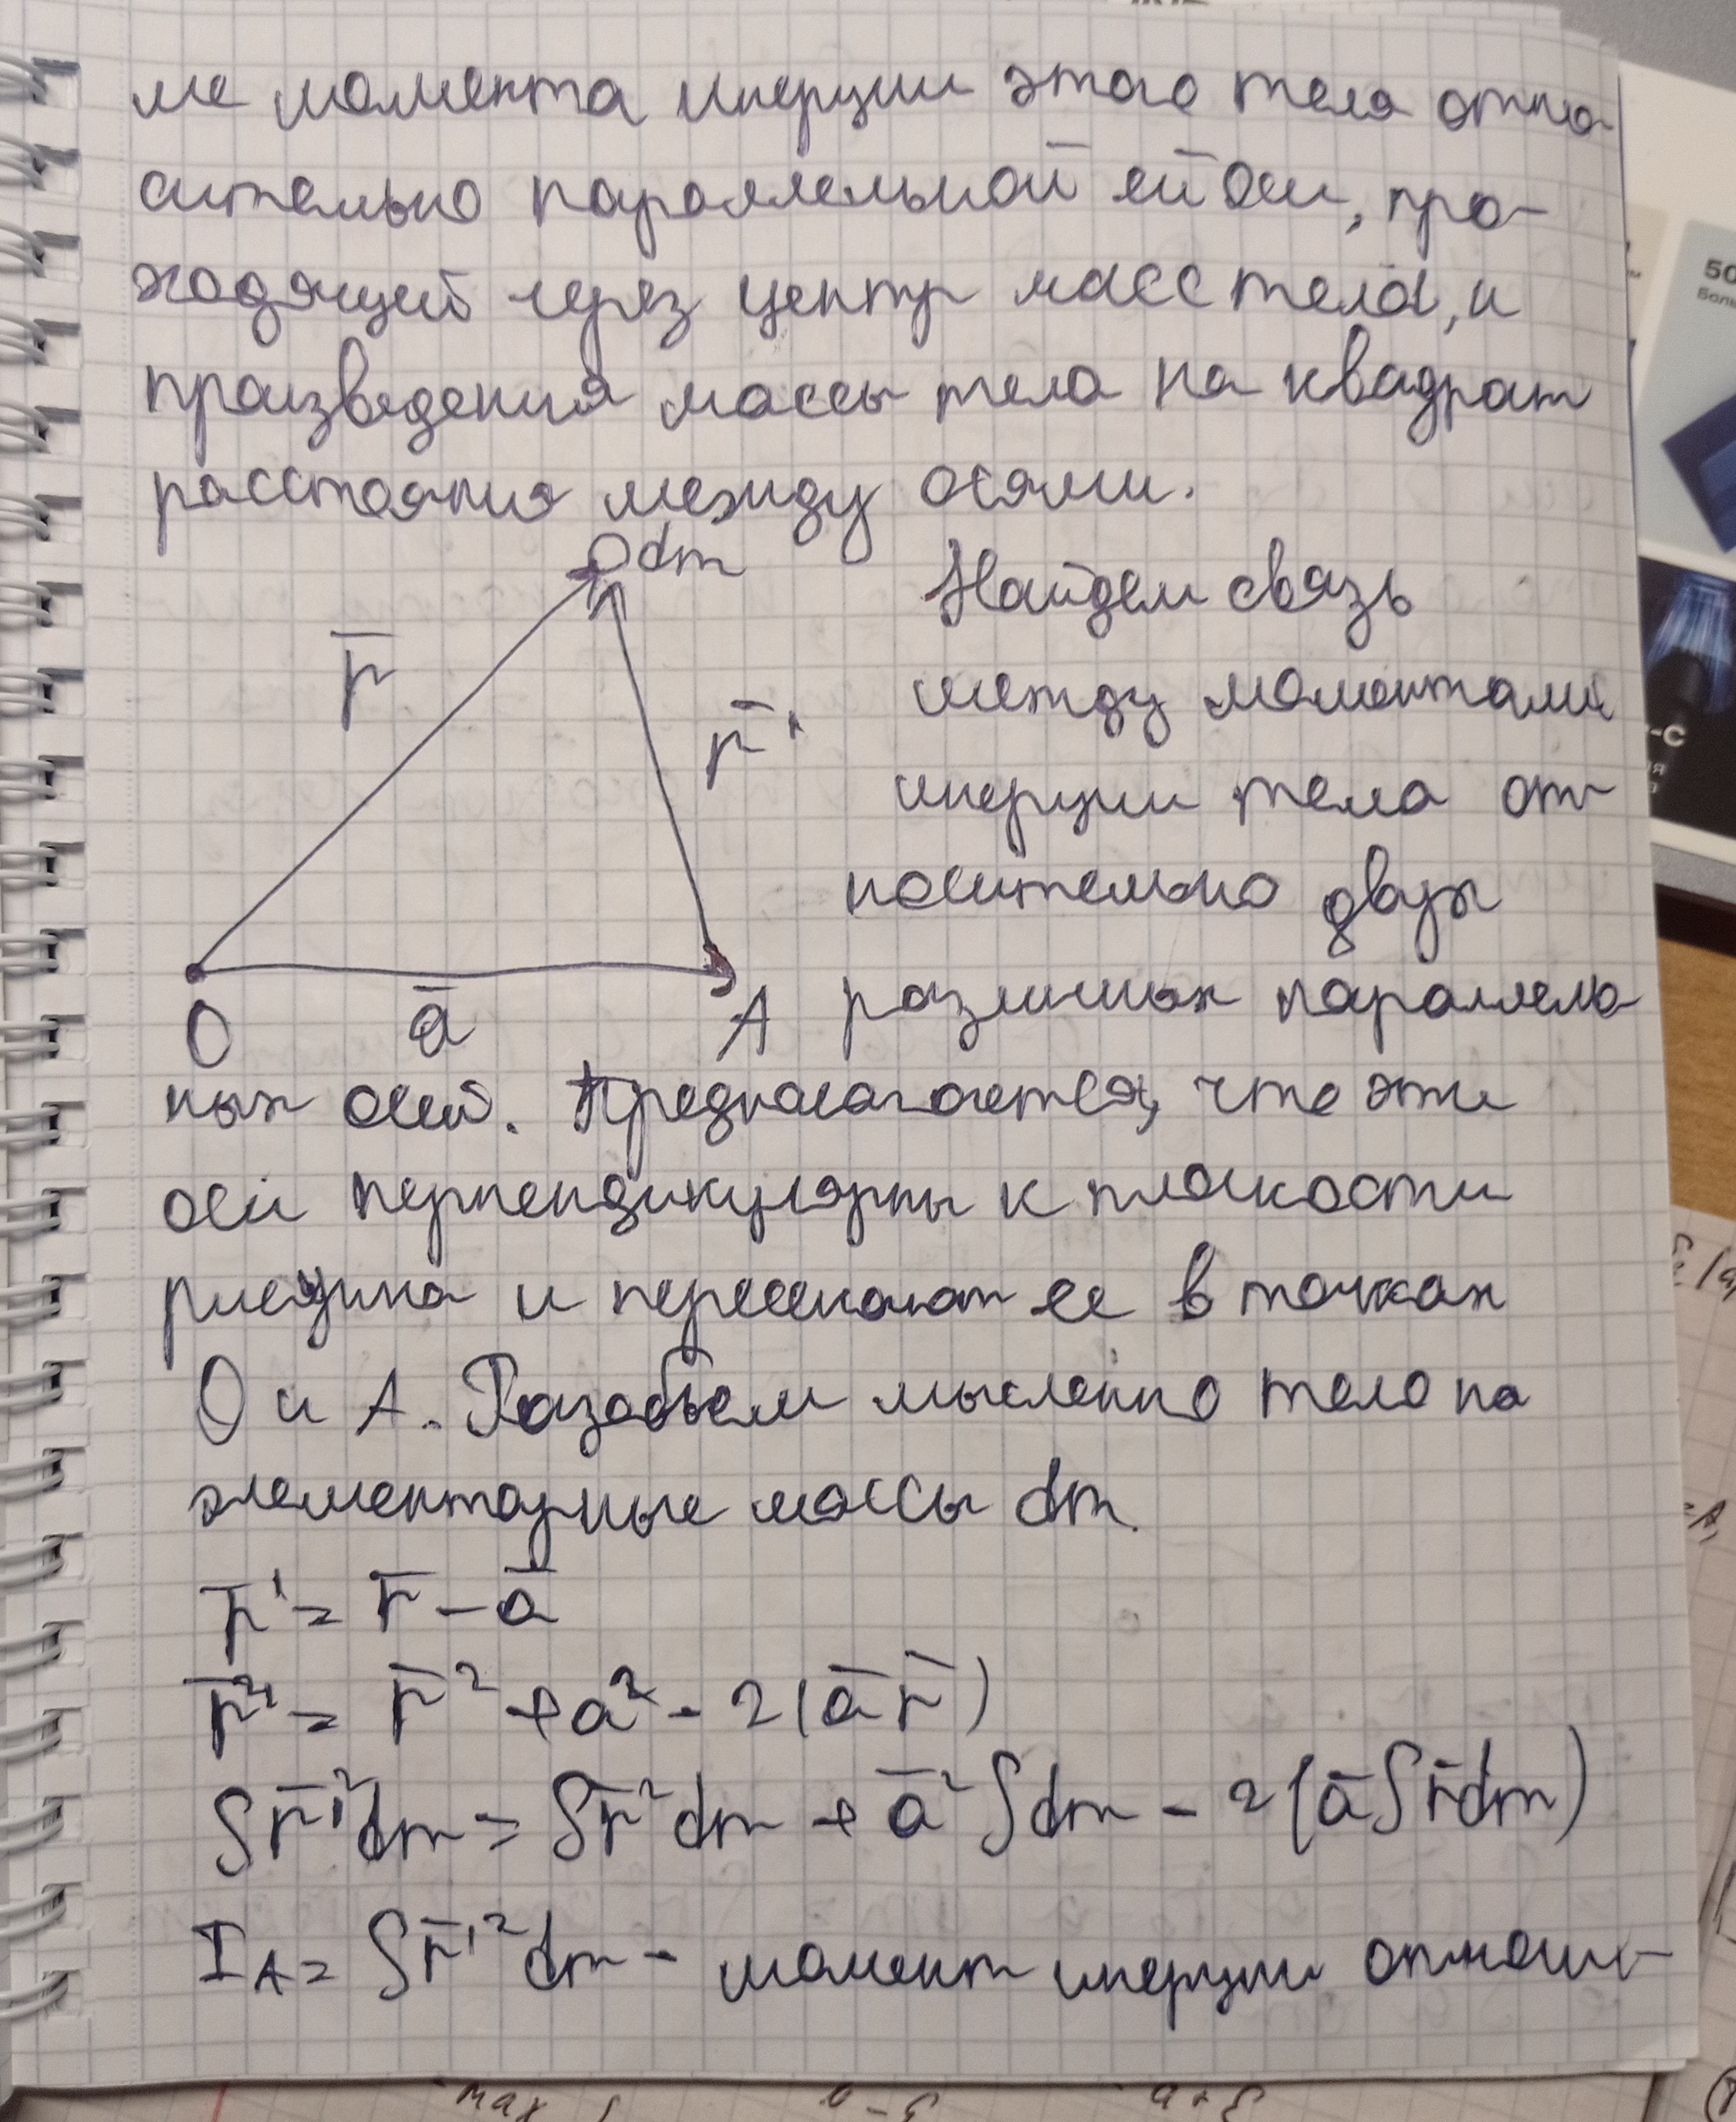 ме момента инерции этого тела отно-
сительно параллельной ей оси, про-
ходящей через центр масс тела, и
произведения массы тела на квадрат
расстояния между осями.
dm
Найдем связь
r̅
между моментами
r̅'
инерции тела от-
носительно двух
O a̅ A
различных параллель
ных осей. Предполагается, что эти
оси перпендикулярны к плоскости
рисунка и пересекают ее в точках
O и A. Разобьем мысленно тело на
элементарные массы dm.
r̅' = r̅ - a̅
r̅²' = r̅² + a² - 2(a̅ r̅)
∫r̅'²dm = ∫r̅²dm + a̅²∫dm - 2(a̅∫r̅dm)
I_A = ∫r̅'²dm - момент инерции относи-
50
-C
max